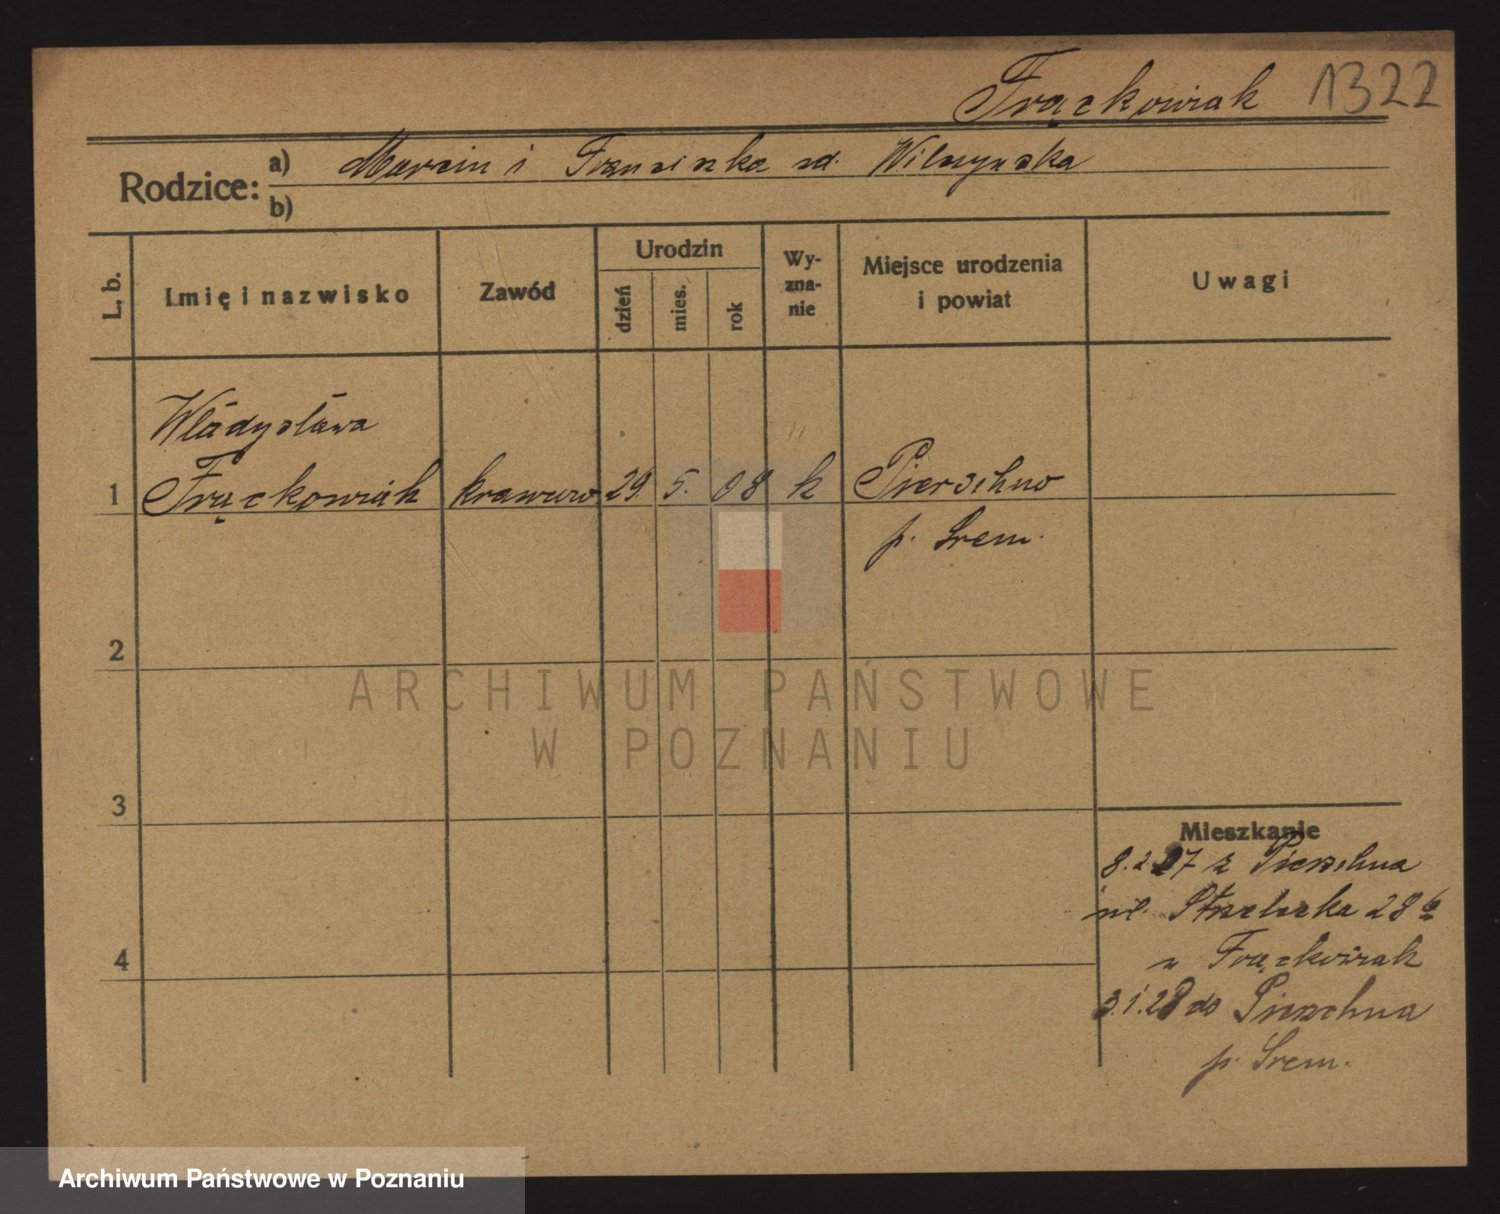 Frąckowiak 1322
Rodzice: a) Marcin i Franciszka zd. Wilczyńska
b)
L. b.
Imię i nazwisko
Zawód
Urodzin
dzień
mies.
rok
Wy-
zna-
nie
Miejsce urodzenia
i powiat
Uwagi
Władysława
1 Frąckowiak krawcowa 29. 5. 08 k Pierzchno
p. Śrem.
2
3
4
Mieszkanie
8.2.27 z Pierzchna
ul. Strzelecka 28
u Frąckowiak
3.1.28 do Pierzchna
p. Śrem.
ARCHIWUM PAŃSTWOWE
W POZNANIU
Archiwum Państwowe w Poznaniu